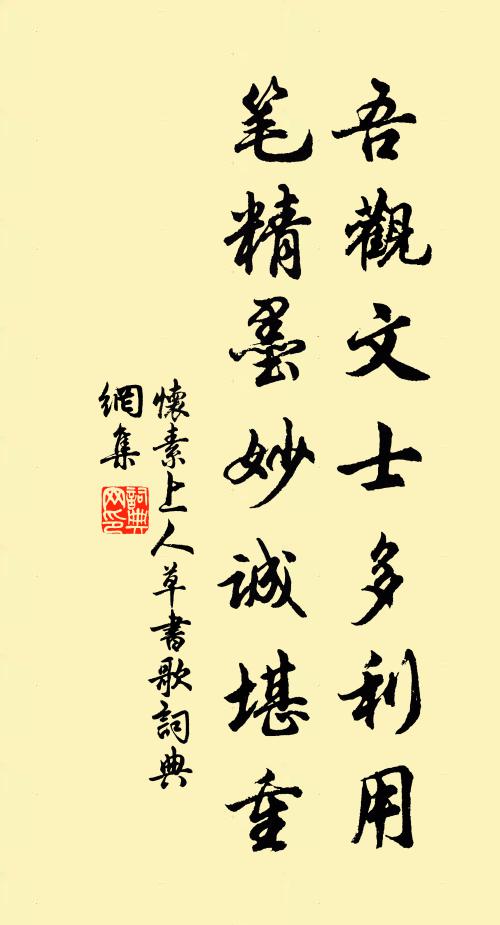 吾觀文士多利用
笔精墨妙誠堪重
懷素上人草書歌詞典
網集
詞典
网印